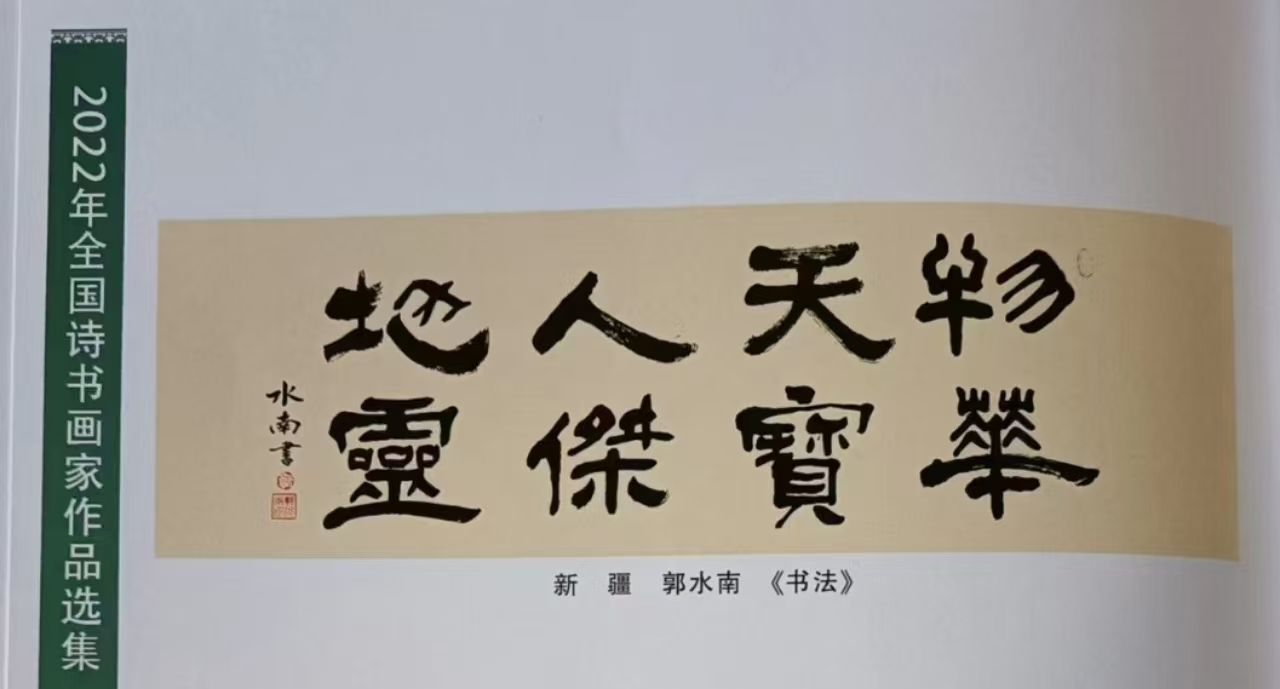 2022年全国诗书画家作品选集
物華
天寳
人傑
地靈
水南書
新 疆 郭水南 《书法》